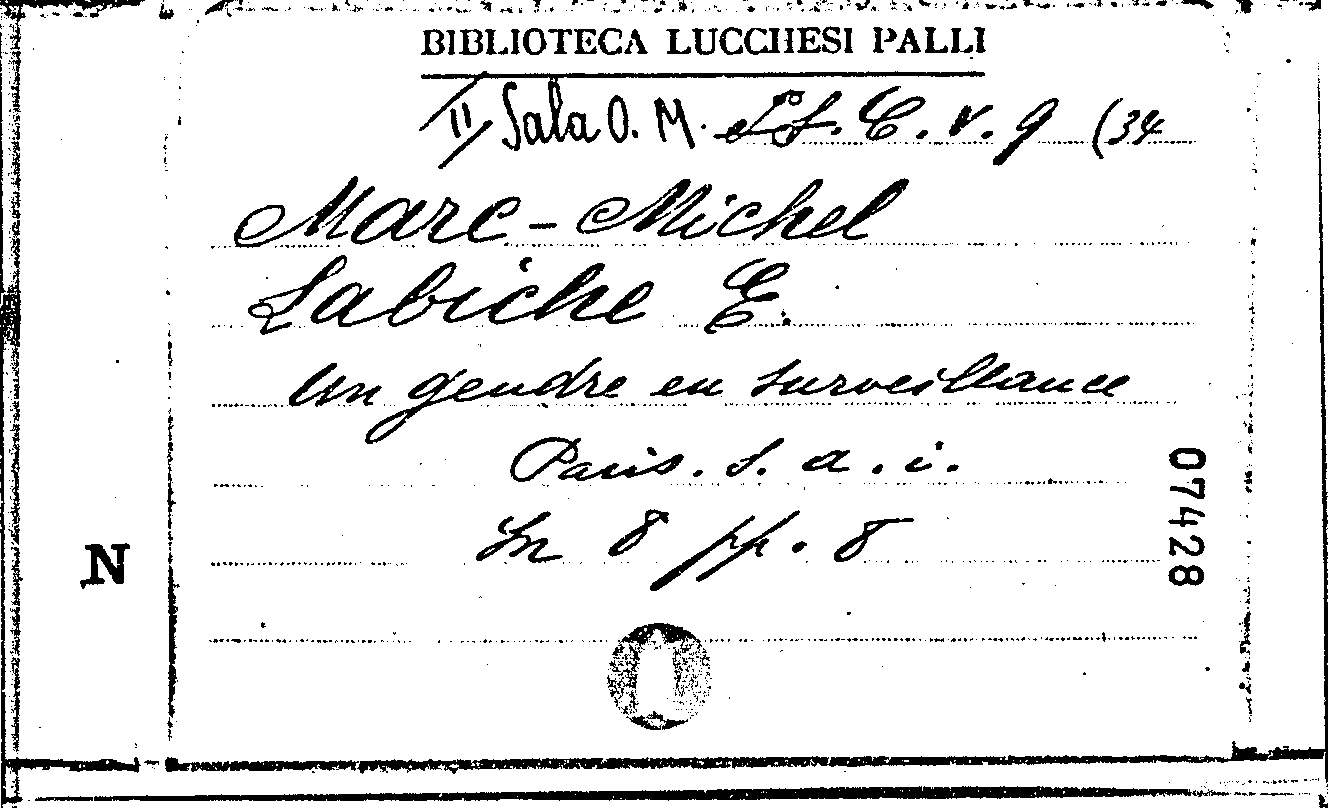 BIBLIOTECA LUCCHESI PALLI
II Sala O. M. C. v. 9 (34
Marc-Michel
Labiche E.
Un gendre en surveillance
Paris. s. a. i.
In 8 pp. 8
07428
N